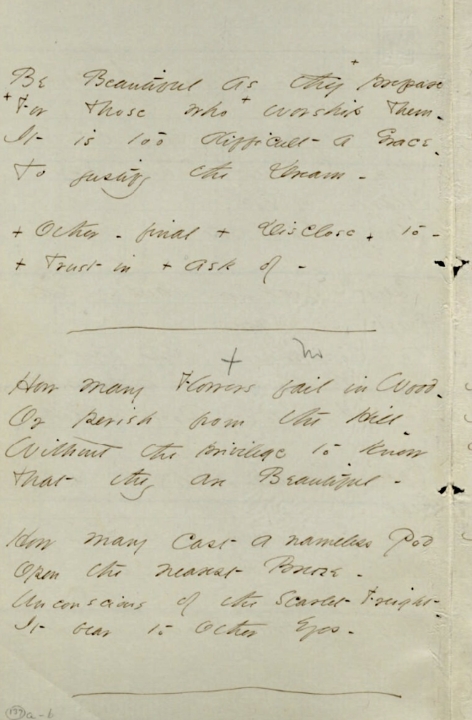 +
Be Beautiful as they prepare
+ For Those who + worship Them -
It is too difficult a Grace -
To justify the Dream -
+ Other - final + Disclose - to -
+ Trust in + ask of -
+ No
How many Flowers fail in Wood -
Or perish from the Hill -
Without the privilege to know
That they are Beautiful -
How many cast a nameless Pod
Opon the nearest Breeze -
Unconscious of the Scarlet Freight -
It bear to Other Eyes -
a-b